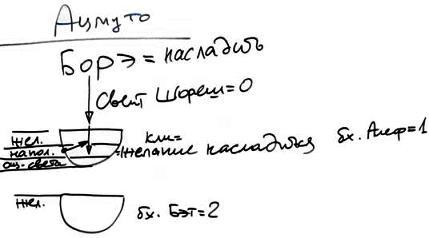 Ацмуто
Борэ = насладить
Свет Шореш = 0
жел.
напол.
ощ. света
кли =
= желание насладиться
бх. Алеф = 1
жел.
бх. Бэт = 2